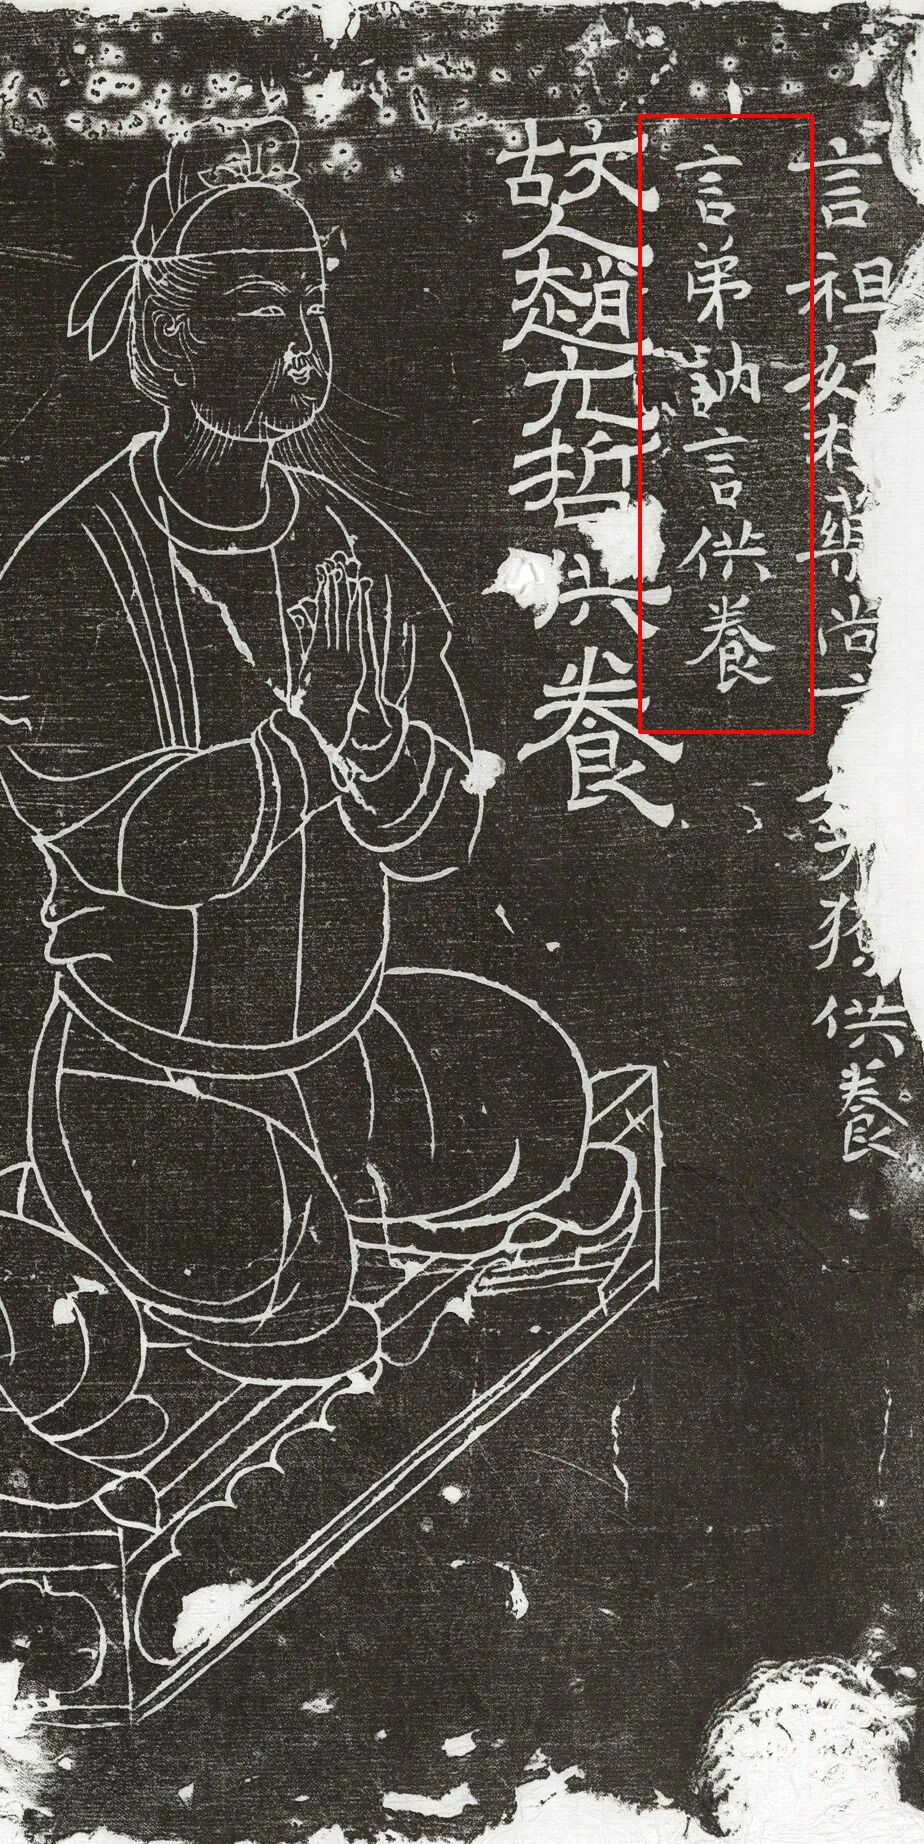 言祖尚供養
言弟訥言供養
故人趙元哲供養